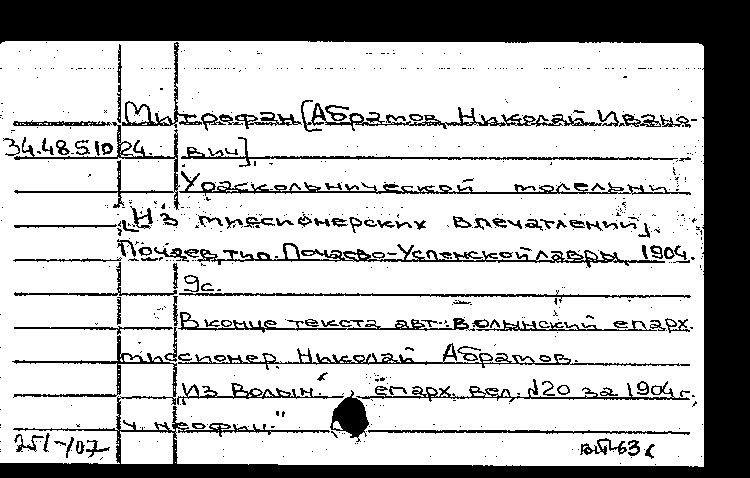 Митрофан [Абрамов, Николай Ивано-
34.48.5.10 24. вич]
У раскольнической молельни.
[Из миссионерских впечатлений].
Почаев, тип. Почаево-Успенской лавры, 1904.
9с.
В конце текста авт.: Волынский епарх.
миссионер Николай Абрамов.
"Из Волын. епарх. вед., №20 за 1904 г.,
ч. неофиц."
251-/07